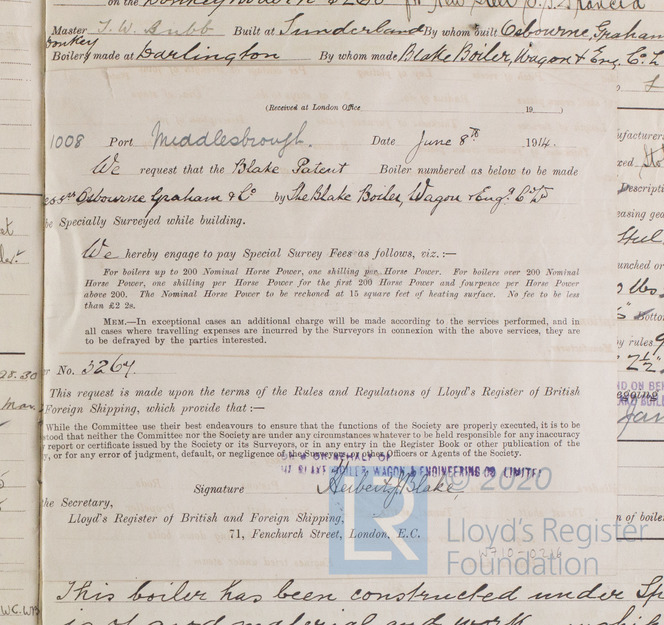 on the Donkey Boiler No. 3260 for New Steel S.S. Francia
Master J. W. Bubb Built at Sunderland By whom built Osbourne, Graham
Donkey
Boilers made at Darlington By whom made Blake Boiler, Wagon & Eng. C. L
(Received at London Office 19 )
1008 Port Middlesbrough. Date June 8th 1914.
We request that the Blake Patent Boiler numbered as below to be made
Osbourne Graham & Co by The Blake Boiler, Wagon & Engg. Co Ld
be Specially Surveyed while building.
We hereby engage to pay Special Survey Fees as follows, viz.:—
For boilers up to 200 Nominal Horse Power, one shilling per Horse Power. For boilers over 200 Nominal
Horse Power, one shilling per Horse Power for the first 200 Horse Power and fourpence per Horse Power
above 200. The Nominal Horse Power to be reckoned at 15 square feet of heating surface. No fee to be less
than £2 2s.
MEM.—In exceptional cases an additional charge will be made according to the services performed, and in
all cases where travelling expenses are incurred by the Surveyors in connexion with the above services, they are
to be defrayed by the parties interested.
r No. 3267.
This request is made upon the terms of the Rules and Regulations of Lloyd's Register of British
Foreign Shipping, which provide that:—
While the Committee use their best endeavours to ensure that the functions of the Society are properly executed, it is to be
stood that neither the Committee nor the Society are under any circumstances whatever to be held responsible for any inaccuracy
report or certificate issued by the Society or its Surveyors, or in any entry in the Register Book or other publication of the
y, or for any error of judgment, default, or negligence of the Surveyors, or other Officers or Agents of the Society.
ON BEHALF OF
BLAKE BOILER, WAGON & ENGINEERING CO LIMITED
Signature Herbert J Blake,
the Secretary,
Lloyd's Register of British and Foreign Shipping,
71, Fenchurch Street, London, E.C.
LR
© 2020
Lloyd's Register
Foundation
This boiler has been constructed under Sp
is of good material and work